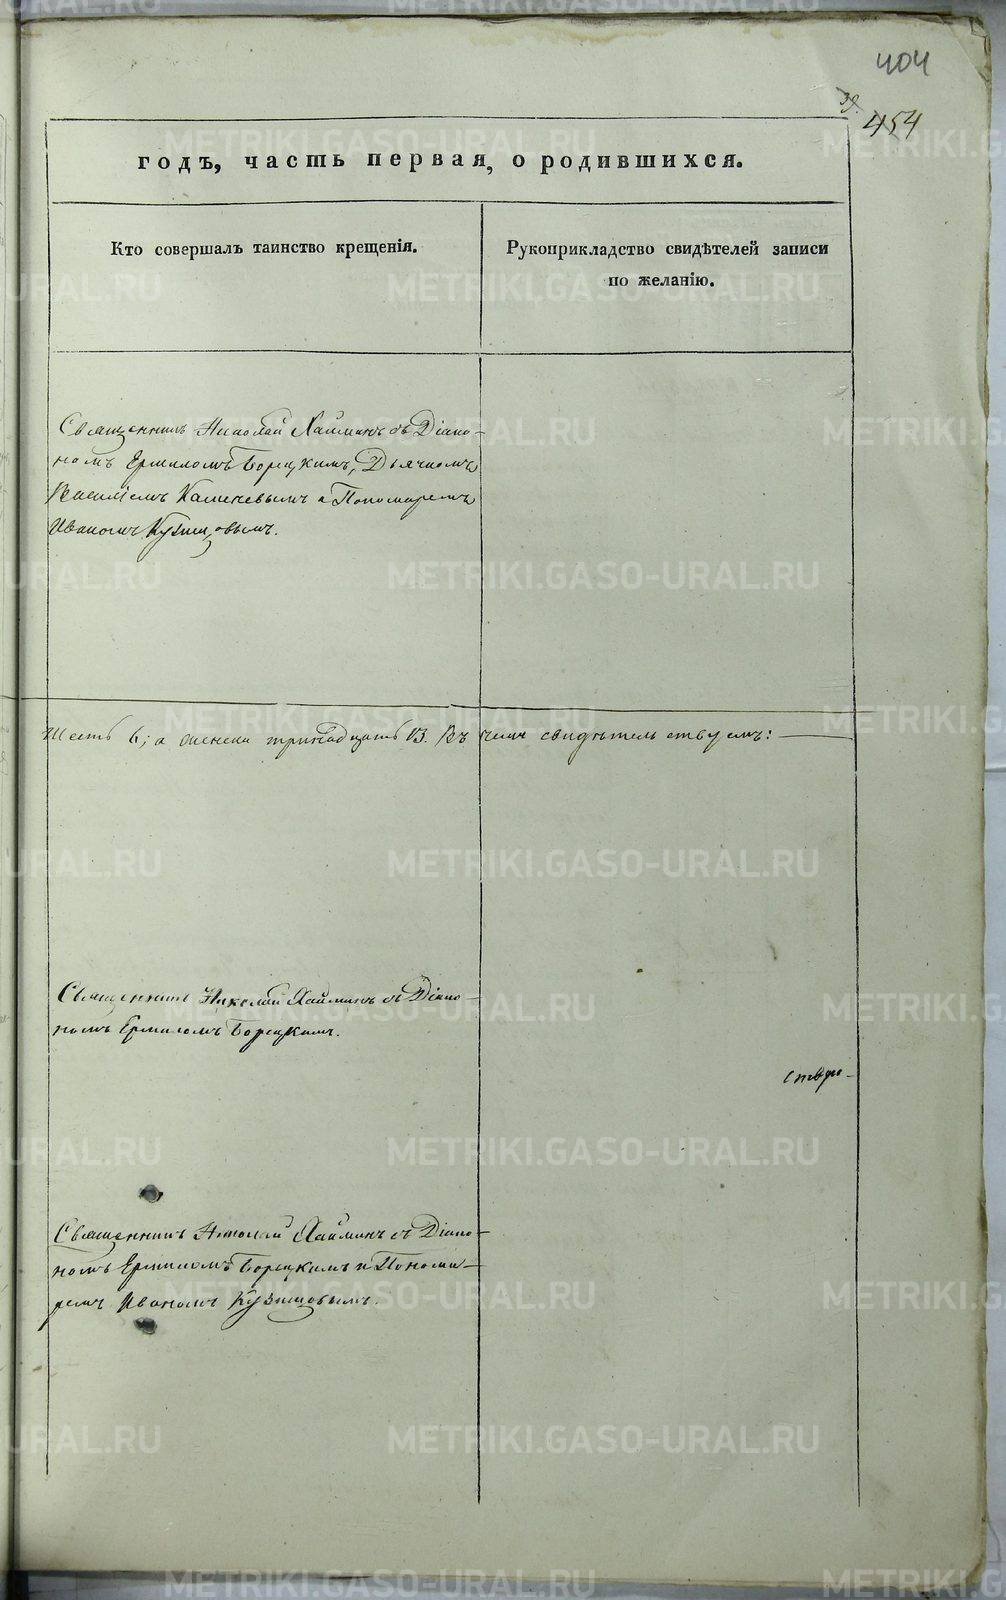 404
39.
454
годъ, часть первая, о родившихся.
Кто совершалъ таинство крещенія.
Рукоприкладство свидѣтелей записи
по желанію.
Священникъ Николай Хайминъ съ Діако-
номъ Ермиломъ Борецкимъ, Дьячкомъ
Василіемъ Каменевымъ и Пономаремъ
Иваномъ Кузнецовымъ.
Шесть 6; а женска тринадцать 13. Въ чемъ свидѣтельствуемъ:
Священникъ Николай Хайминъ съ Діако-
номъ Ермиломъ Борецкимъ.
Священникъ Николай Хайминъ съ Діако-
номъ Ермиломъ Борецкимъ и Понома-
ремъ Иваномъ Кузнецовымъ.
METRIKI.GASO-URAL.RU